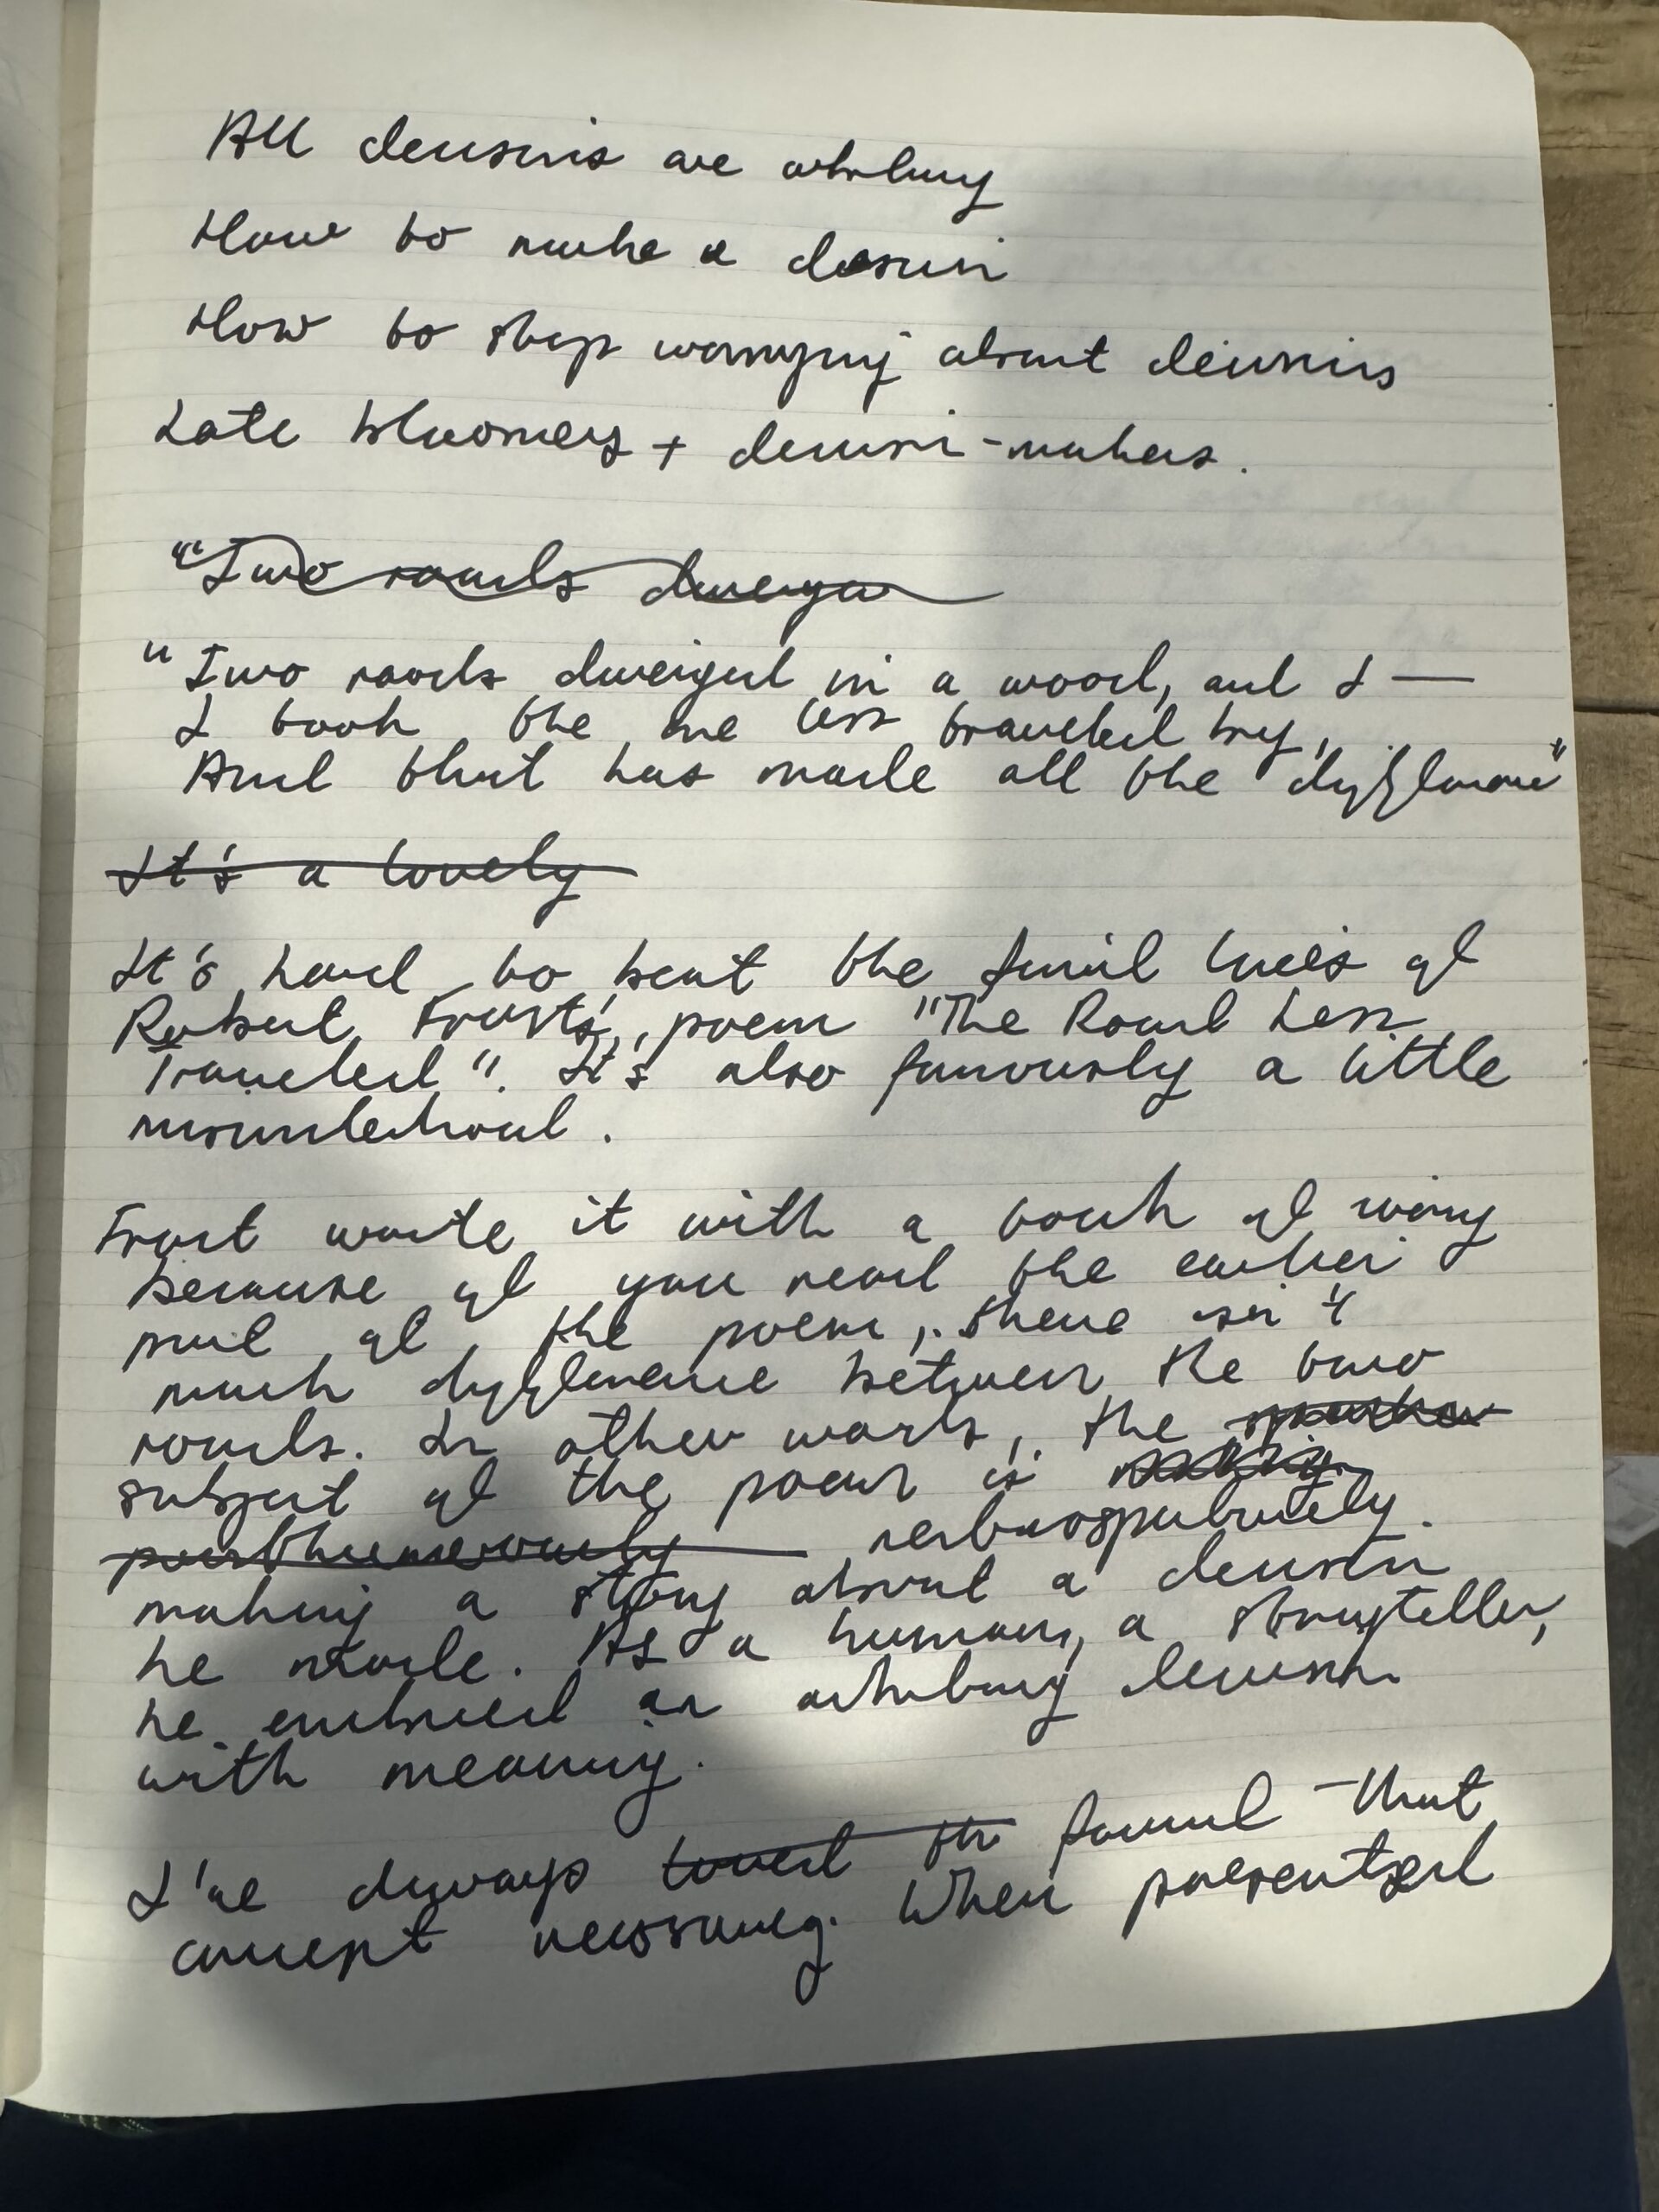 All decisions are arbitrary
How to make a decision
How to stop worrying about decisions
Late bloomers + decision-makers.
"Two roads diverge
"Two roads diverged in a wood, and I —
I took the one less traveled by,
And that has made all the difference"
It's a lovely
It's hard to beat the final lines of
Robert Frost's, poem "The Road Less
Traveled". It's also famously a little
misunderstood.
Frost wrote it with a touch of irony
because if you read the earlier
part of the poem, there isn't
much difference between the two
roads. In other words, the speaker
subject of the poem is
posthumorously retrospectively
making a story about a decision
he made. As a human, a storyteller,
he embued an arbitrary decision
with meaning.
I've always loved th found that
concept reassuring. When presented